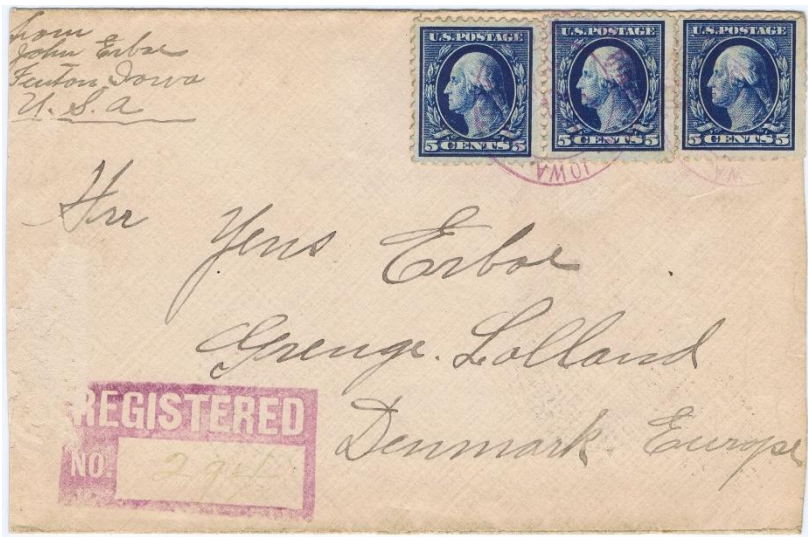 from
John Erboe
Fenton Iowa
U. S. a
U.S. POSTAGE
5 CENTS 5
U.S. POSTAGE
5 CENTS 5
U.S. POSTAGE
5 CENTS 5
IOWA
WA
Hrr
Yens Erboe
Grenge. Lolland
Denmark. Europe
REGISTERED
NO. 294